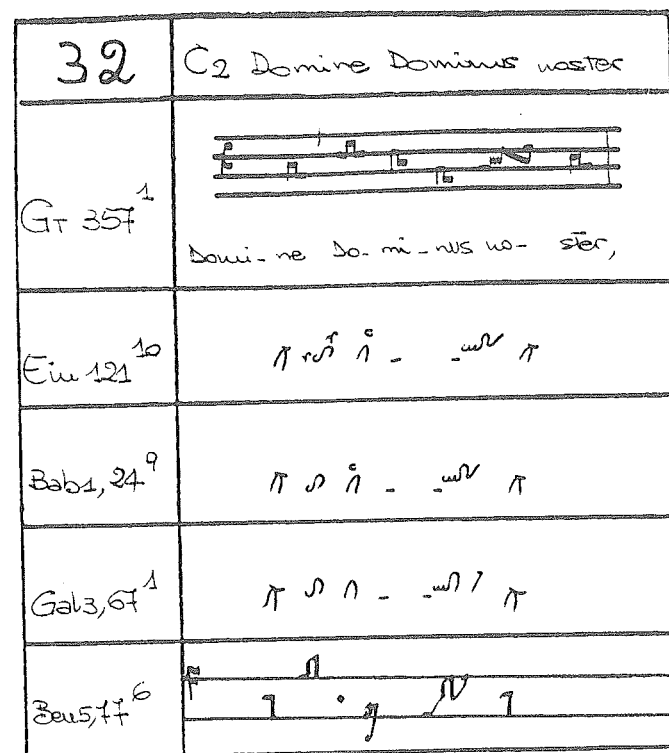 32
C2 Domine Dominus noster
GT 357 1
Domi-ne Do-mi-nus no- ster,
Ein 121 10
Bab1, 24 9
Gal3, 67 1
Ben5, 77 6